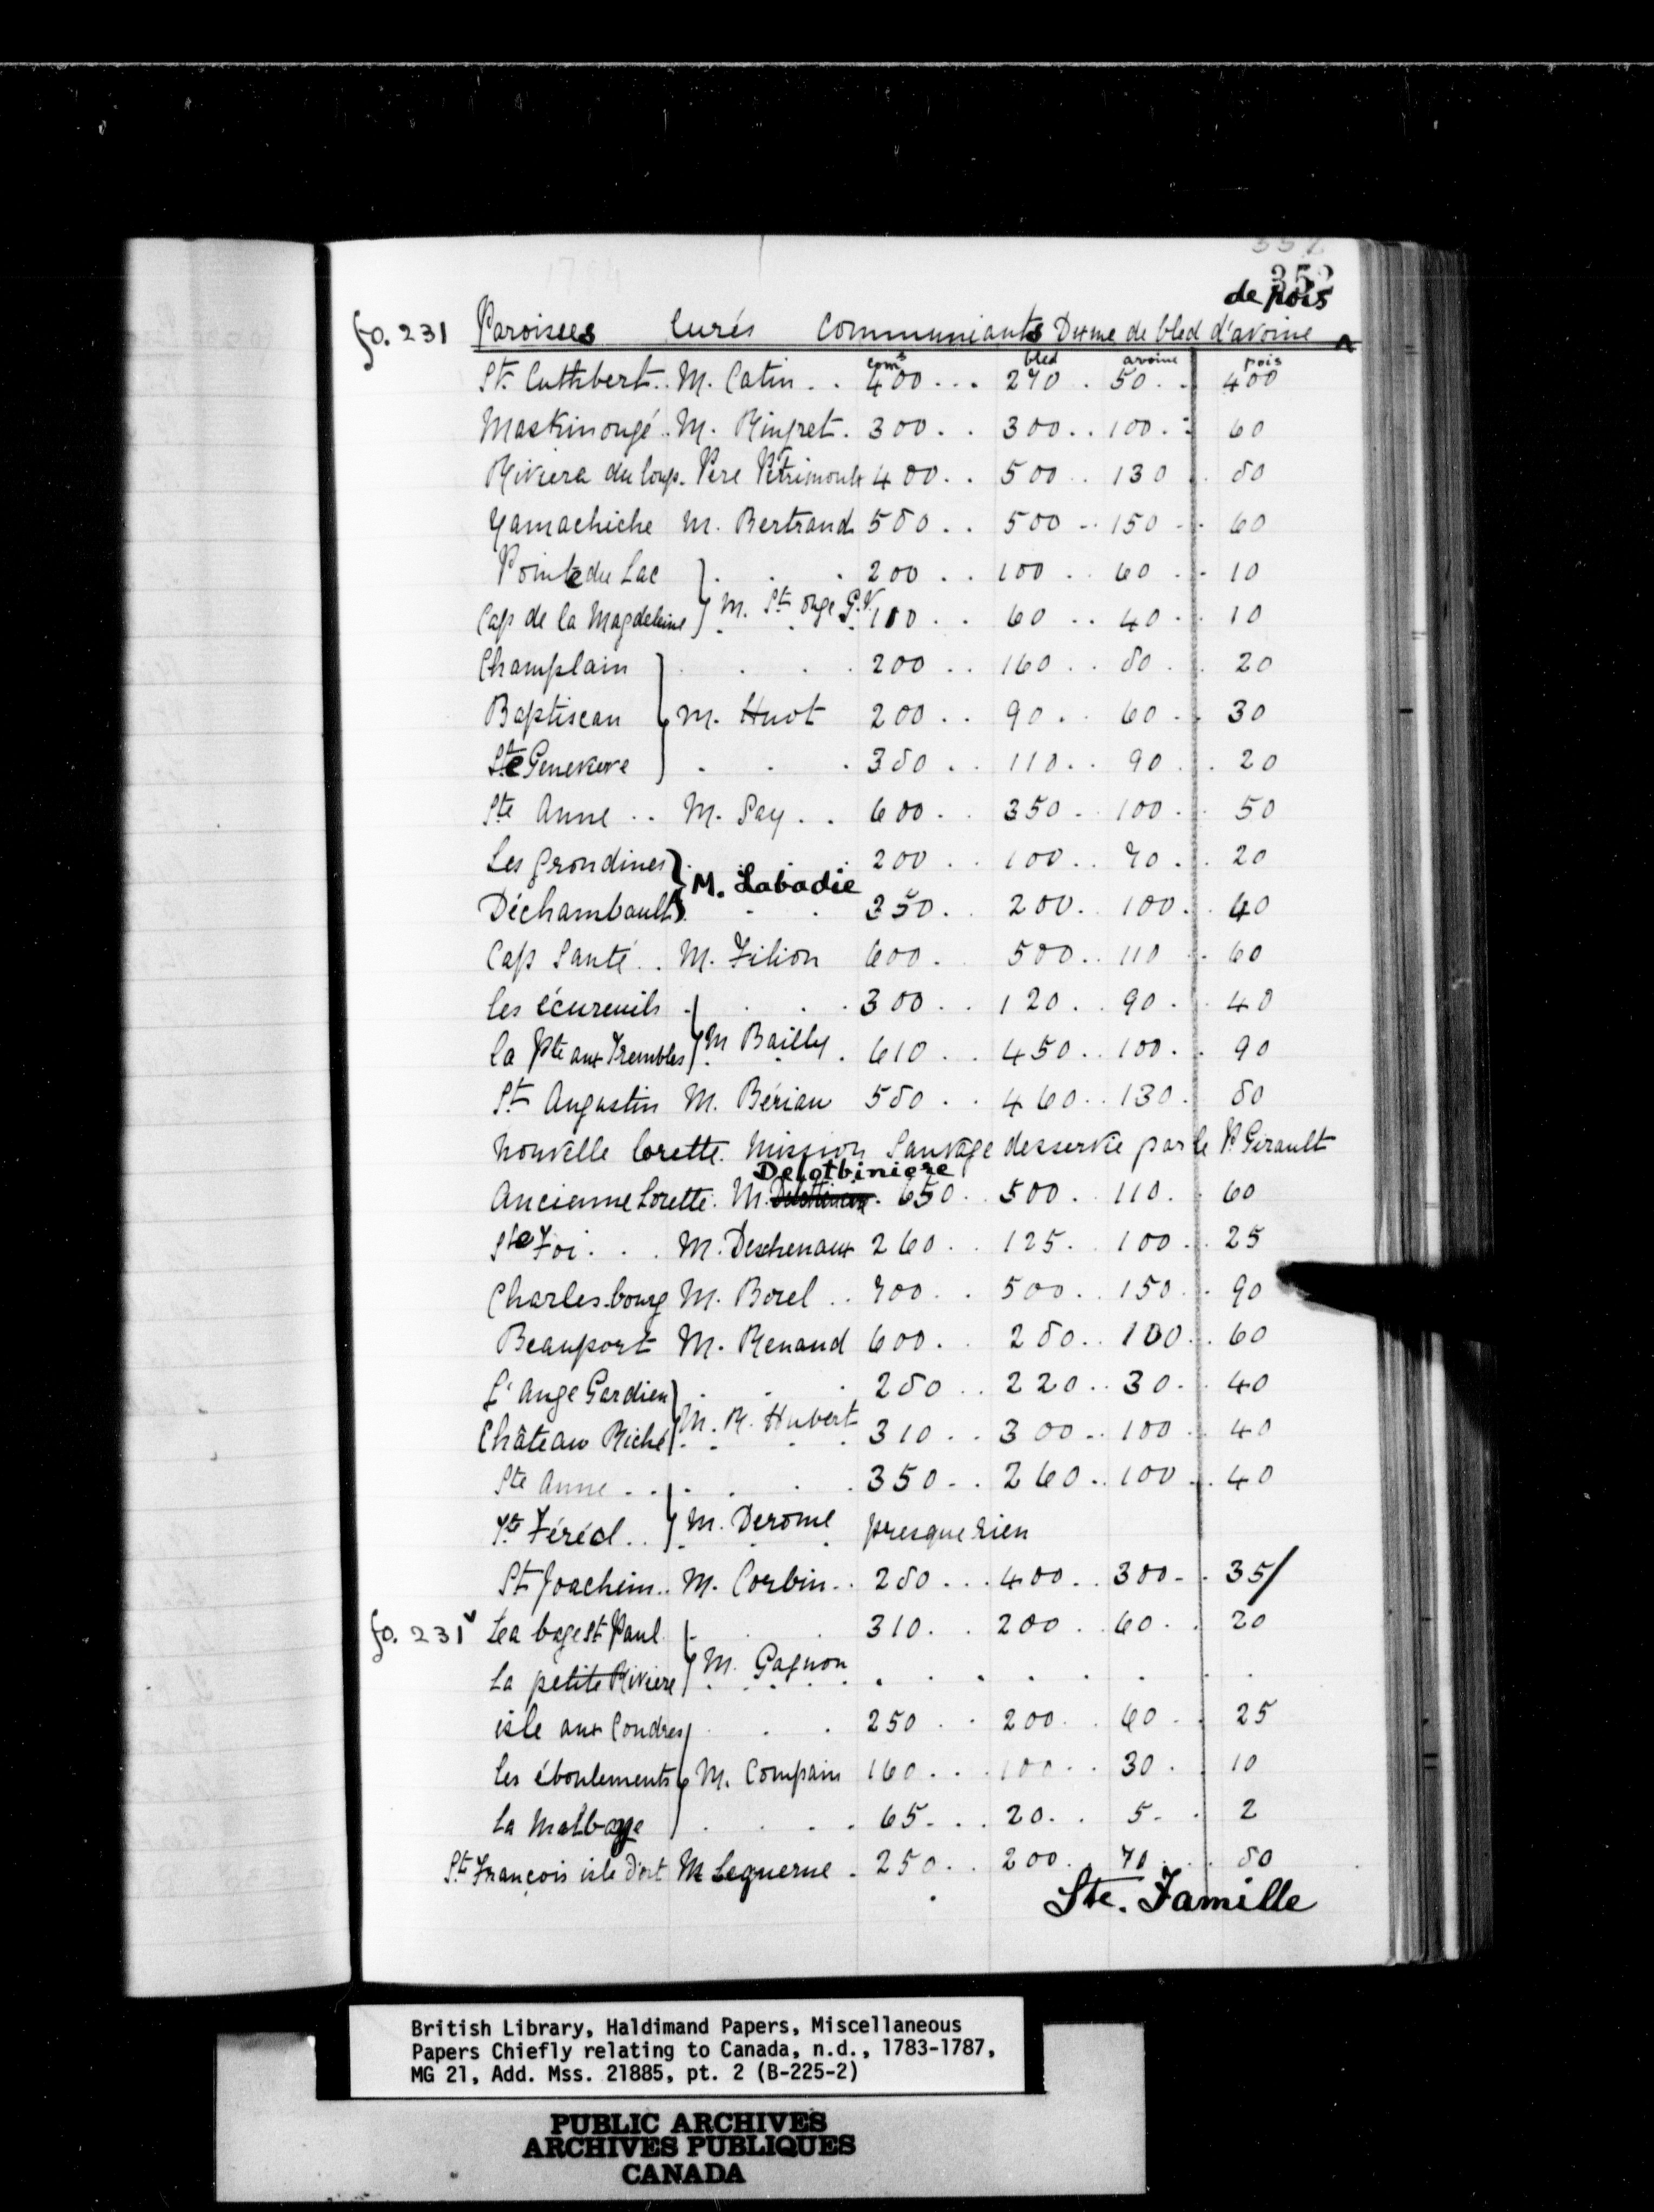 352
de pois
fo. 231 Paroisses Curés Communiants Dixme de bled d'avoine ^
com.s bled avoine pois
St. Cuthbert .. M. Catin . . 400 ... 270 . 50 . . 400
Maskinongé .. M. Ringret . 300 . . 300 .. 100 . : 60
Riviere du loup . Pere Petrimoult 400 . . 500 .. 130 . 80
Yamachiche M. Bertrand 580 . . 500 .. 150 .. 60
Pointe du Lac } . . . 200 . . 100 .. 60 .. 10
Cap de la Magdeleine } M. St. Onge G.V. 110 . . 60 .. 40 .. 10
Champlain } . . . 200 . . 160 . . 80 . . 20
Baptiscan } M. Huot 200 . . 90 . . 60 . . 30
Ste Genevieve } . . . 380 . . 110 . . 90 . . 20
Ste Anne .. M. Pay . . 600 . . 350 . 100 . . 50
Les Grondines } . . 200 . . 100 . . 70 . . 20
Déchambault } M. Labadie . . 350 . 200 . 100 . . 40
Cap Santé .. M. Filion 600 . 500 .. 110 .. 60
les écureuils } . . . 300 . . 120 . . 90 . . 40
la Pte aux Trembles } M Bailly . 610 . . 450 .. 100 . . 90
St. Augustin M. Bériau 580 . . 460 .. 130 . 80
Nouvelle lorette . Mission Sauvage desservie par le P. Girault
Delotbiniere
Ancienne Lorette . M. . 650 . . 500 . . 110 . . 60
Ste Foi . . . M. Deschenaux 260 . . 125 . 100 .. 25
Charlesbourg M. Borel .. 700 . . 500 . . 150 . . 90
Beauport M. Renaud 600 . . 280 .. 100 .. 60
L'Ange Gardien } . . . 280 .. 220 .. 30 . . 40
Château Riché } M. R. Hubert . 310 . . 300 .. 100 .. 40
Ste Anne ... } . . . 350 . . 260 .. 100 .. 40
St. Féréol .. } M. Derome presque rien
St. Joachim .. M. Corbin .. 280 ... 400 .. 300 . . 35/
fo. 231v La baye St Paul } . . 310 . . 200 . . 60 . . 20
La petite Riviere } M. Gagnon . . . . . .
isle aux Condres } . . . 250 . . 200 . . 60 . . 25
les éboulements } M. Compain 160 . . . 100 . . 30 . . 10
La Malbaye } . . . . 65 . . . 20 . . 5 . . 2
St. François isle d'orl M Leguerne . 250 . . 200 . . 70 . . . 80
Ste. Famille
British Library, Haldimand Papers, Miscellaneous
Papers Chiefly relating to Canada, n.d., 1783-1787,
MG 21, Add. Mss. 21885, pt. 2 (B-225-2)
PUBLIC ARCHIVES
ARCHIVES PUBLIQUES
CANADA